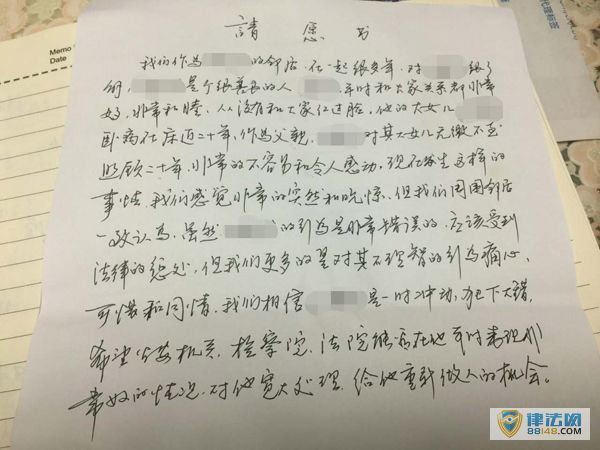 Memo
Date
請愿书
我们作为 的邻居,在一起很多年,对 很了
解, 是个很善良的人 ,平时和大家关系都非常
好,非常和睦,从没有和大家红过脸,他的大女儿
卧病在床近二十年,作为父亲, 对其大女儿无微不至
照顾二十年,非常的不容易和令人感动,现在发生这样的
事情,我们感觉非常的突然和吃惊,但我们周围邻居
一致认为,虽然 的行为是非常错误的,应该受到
法律的惩处,但我们更多的是对其不理智的行为痛心,
可惜和同情,我们相信 是一时冲动,犯下大错,
希望公安机关、检察院、法院能否在他平时表现非
常好的情况,对他宽大处理,给他重新做人的机会。
律法网
88148.com